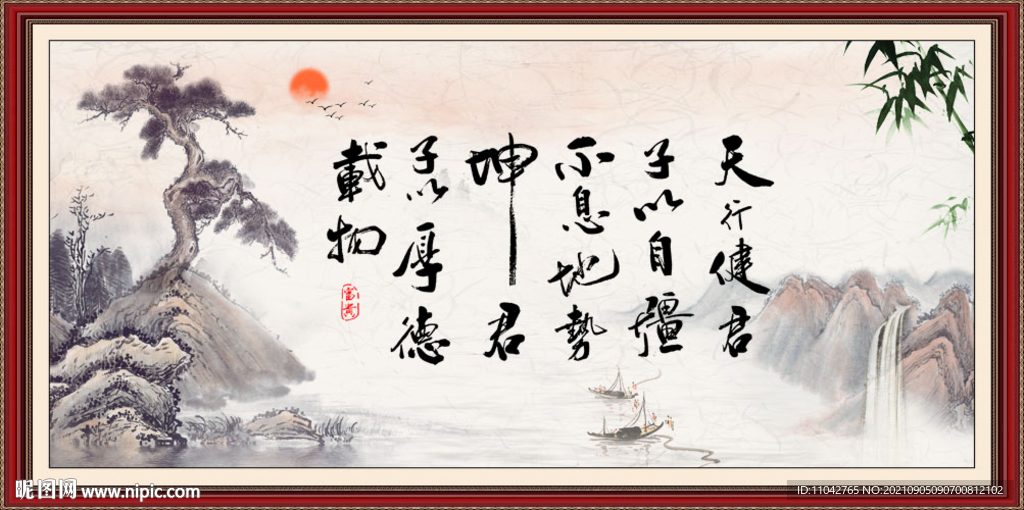 天行健君
子以自彊
不息地勢
坤君
子以厚德
載物
昵图网 www.nipic.com
ID:11042765 NO:20210905090700812102